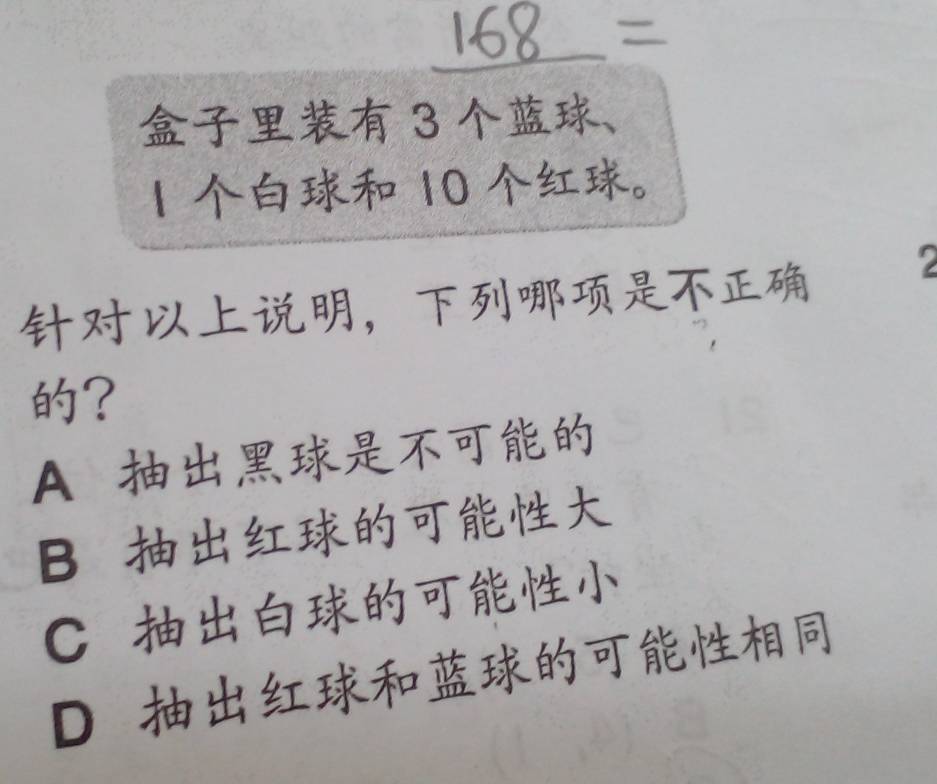 168 =
盒子里装有 3 个蓝球、
1 个白球和 10 个红球。
针对以上说明，下列哪项是不正确
2
的？
A 抽出黑球是不可能的
B 抽出红球的可能性大
C 抽出白球的可能性小
D 抽出红球和蓝球的可能性相同